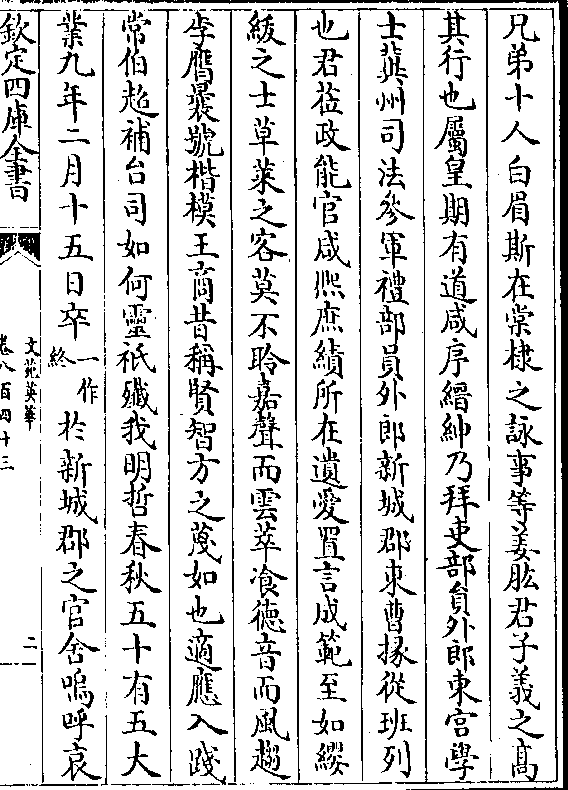 兄弟十人白眉斯在棠棣之詠事等姜肱君子義之髙
其行也屬皇期有道咸序縉紳乃拜吏部員外郎東宫學
士冀州司法參軍禮部員外郎新城郡東曹掾從班列
也君莅政能官咸熈庶績所在遺愛置言成範至如纓
緌之士草萊之客莫不聆嘉聲而雲萃飡德音而風趨
李膺曩號楷模王商昔稱賢智方之蔑如也適應入踐
常伯超補台司如何靈祇殲我明哲春秋五十有五大
業九年二月十五日卒一作終於新城郡之官舍嗚呼哀
欽定四庫全書
文苑英華
卷八百四十三
二